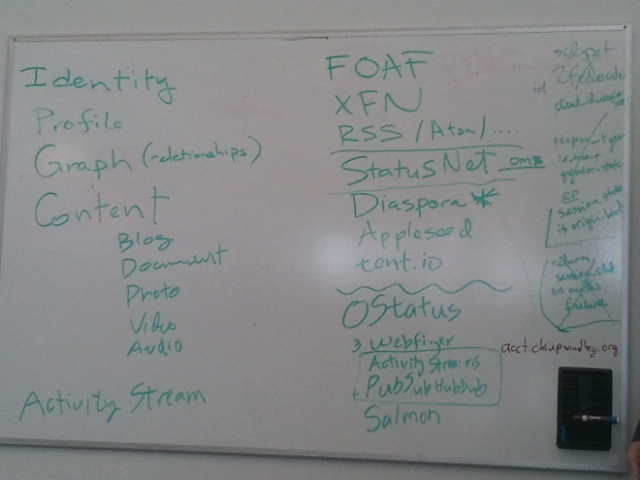 Identity
Profile
Graph (relationships)
Content
Blog
Document
Photo
Video
Audio
Activity Stream
FOAF
XFN
RSS / Atom / ....
StatusNet OMB
Diaspora *
Appleseed
tent.io
OStatus
Webfinger
Activity Streams
PubSubHubSub
Salmon
session_state
is origin
return
session_state
on
failure